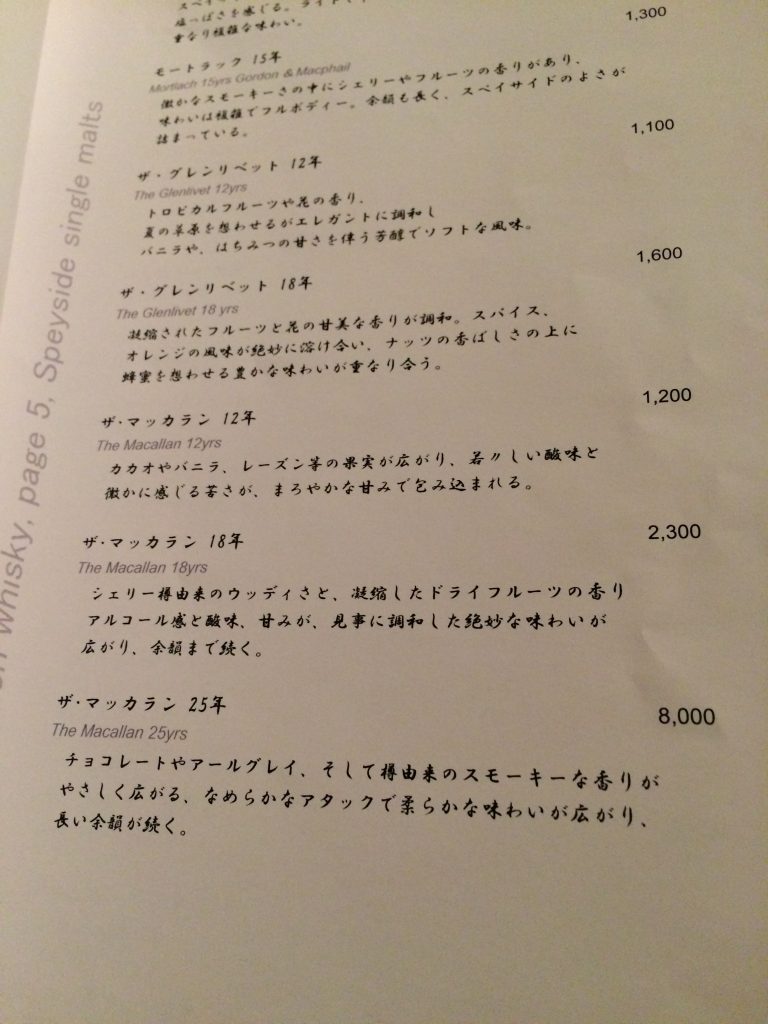 塩っぽさを感じる。
重なり複雑な味わい。
1,300
モートラック 15年
Mortlach 15yrs Gordon & Macphail
微かなスモーキーさの中にシェリーやフルーツの香りがあり、
味わいは複雑でフルボディー。余韻も長く、スペイサイドのよさが
詰まっている。
1,100
ザ・グレンリベット 12年
The Glenlivet 12yrs
トロピカルフルーツや花の香り、
夏の草原を想わせるがエレガントに調和し
バニラや、はちみつの甘さを伴う芳醇でソフトな風味。
1,600
ザ・グレンリベット 18年
The Glenlivet 18 yrs
凝縮されたフルーツと花の甘美な香りが調和。スパイス、
オレンジの風味が絶妙に溶け合い、ナッツの香ばしさの上に
蜂蜜を想わせる豊かな味わいが重なり合う。
1,200
ザ・マッカラン 12年
The Macallan 12yrs
カカオやバニラ、レーズン等の果実が広がり、若〃しい酸味と
微かに感じる苦さが、まろやかな甘みで包み込まれる。
2,300
ザ・マッカラン 18年
The Macallan 18yrs
シェリー樽由来のウッディさと、凝縮したドライフルーツの香り
アルコール感と酸味、甘みが、見事に調和した絶妙な味わいが
広がり、余韻まで続く。
8,000
ザ・マッカラン 25年
The Macallan 25yrs
チョコレートやアールグレイ、そして樽由来のスモーキーな香りが
やさしく広がる、なめらかなアタックで柔らかな味わいが広がり、
長い余韻が続く。
whisky, page 5, Speyside single malts